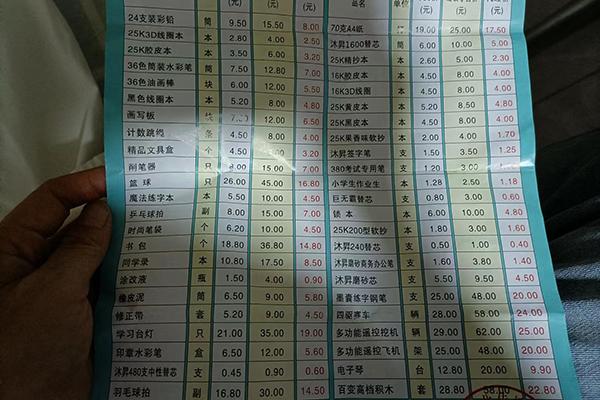 (元) (元) (元) 品名 单价
24支装彩铅 筒 9.50 15.50 8.00
25K3D线圈本 本 2.80 4.00 2.50
25K胶皮本 本 3.50 6.00 3.20
36色筒装水彩笔 筒 7.50 12.80 7.00
36色油画棒 块 6.00 12.00 5.50
黑色线圈本 本 5.20 8.00 4.80
画写板 8.00 6.00
计数跳绳 条 4.50 8.00 4.00
精品文具盒 个 3.20
削笔器 只 8.00 15.00 7.00
篮球 只 26.00 45.00 16.80
魔法练字本 本 5.50 10.00 4.50
乒乓球拍 副 8.00 15.00 7.00
时尚笔袋 个 6.20 10.00 4.50
书包 个 18.80 36.80 14.80
同学录 本 10.80 17.50 8.50
涂改液 瓶 1.50 4.00 0.90
橡皮泥 筒 6.50 9.00 5.80
修正带 套 5.20 9.00 4.50
学习台灯 只 21.00 35.00 19.00
印章水彩笔 盒 6.50 12.00 5.60
沐昇480支中性替芯 支 0.45 0.90 0.60
羽毛球拍 副 16.80 30.00 14.50
70克A4纸 19.00 25.00 17.50
沐昇1600替芯 筒 6.00 10.00 5.00
25K精抄本 本 2.60 5.00 2.30
16K胶皮本 本 4.50 8.00 4.00
16K3D线圈 本 4.50 8.00 4.00
25K黄皮本 本 5.20 8.50 4.80
25K黑皮本 本 4.50 8.00 4.00
25K果香味软抄 本 2.00 4.00 1.70
沐昇签字笔 支 1.50 3.50 1.25
380考试专用笔 支 1.60 3.50 1.35
小学生作业生 本 1.28 2.50 1.18
巨无霸替芯 支 0.80 3.00 0.60
锁本 本 6.00 10.00 4.80
25K200型软抄 本 1.80 3.00 1.60
沐昇240替芯 支 0.50 1.00 0.40
沐昇磨砂商务办公笔 支 1.60 3.80 1.40
沐昇磨砂芯 支 5.50 9.50 4.50
墨囊练字钢笔 支 25.00 48.00 20.00
四驱赛车 辆 28.00 58.00 24.00
多功能遥控挖机 辆 29.00 62.00 25.00
多功能遥控飞机 架 25.00 48.00 20.00
电子琴 台 12.80 20.00 9.90
百变高档积木 套 28.80 58.00 22.80